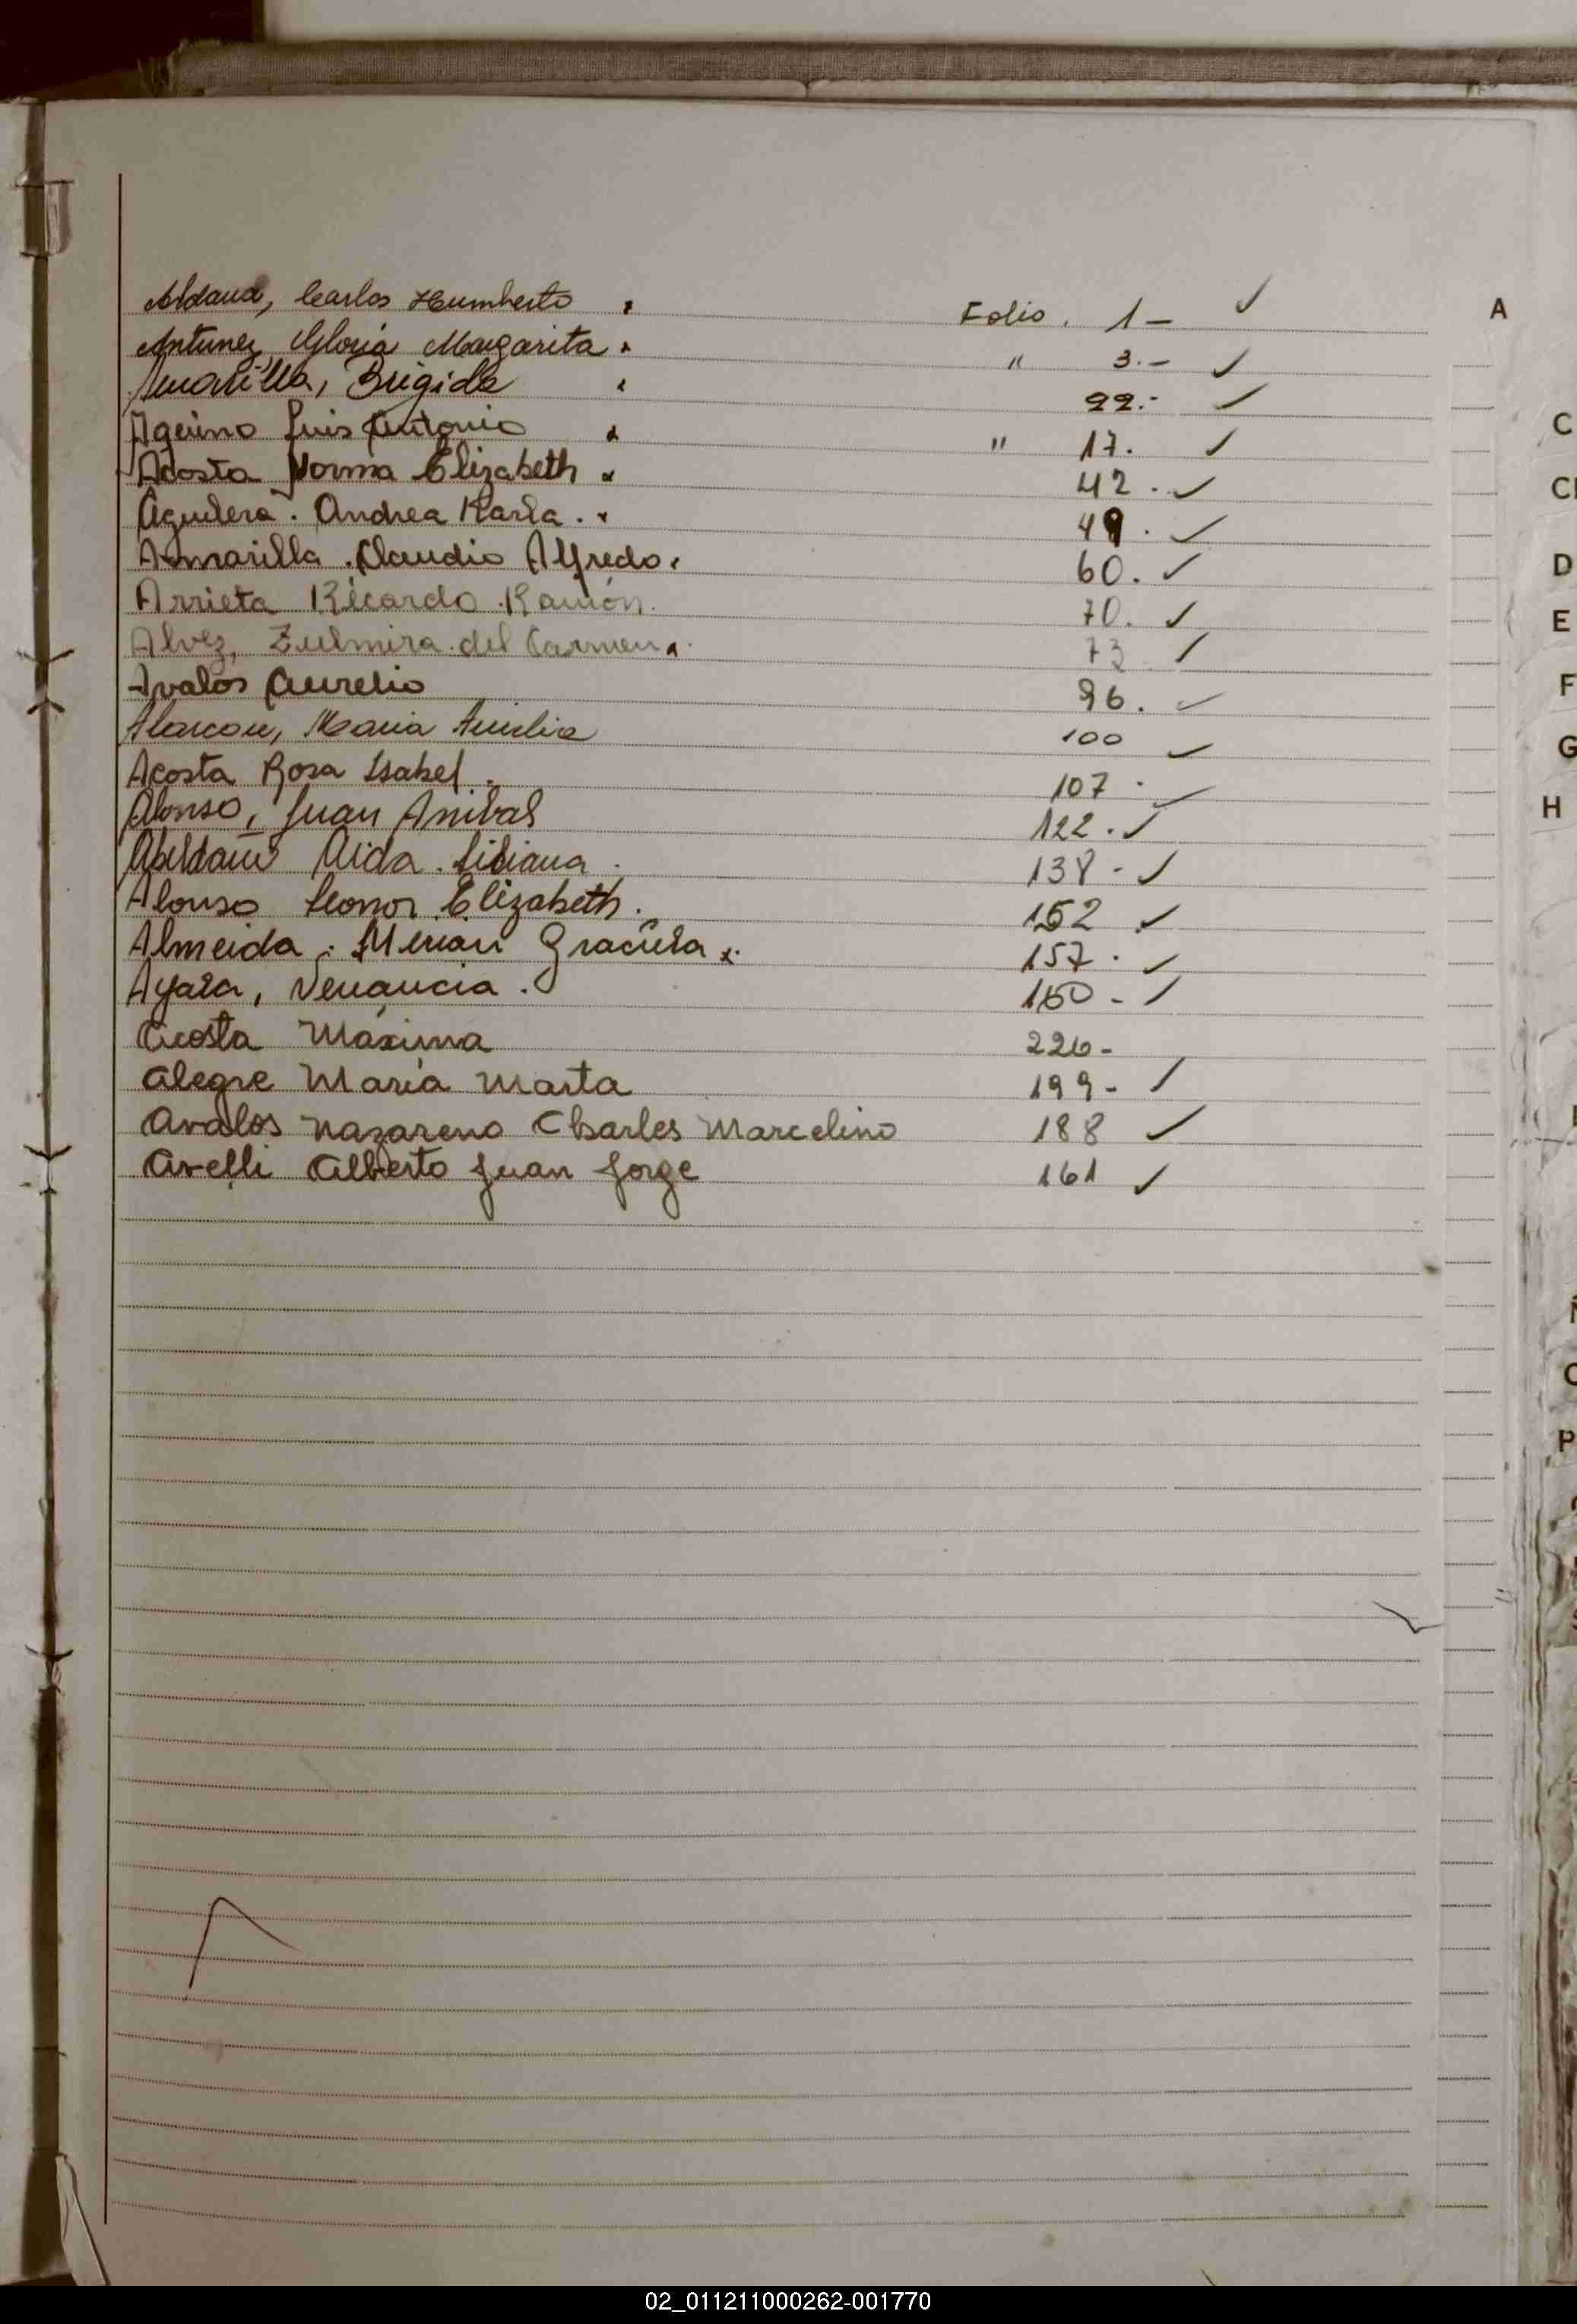 Aldana, Carlos Humberto Folio. 1- ✓ A
Antunez Gloria Margarita " 3.- ✓
Amarilla, Brigida 22.- ✓
Aquino Luis Antonio " 17. ✓ C
Acosta Norma Elizabeth 42. ✓
Aguilera. Andrea Karla. 49. ✓
Amarilla. Claudio Alfredo. 60. ✓ D
Arrieta Ricardo Ramón. 70. ✓ E
Alvez, Zulmira del Carmen 73 ✓
Avalos Aurelio 96. ✓ F
Alarcon, Maria Amelia 100 ✓ G
Acosta Rosa Isabel. 107. ✓
Alonso, Juan Anibal 122. ✓ H
Aida. Liliana. 138- ✓
Alonso Leonor Elizabeth. 152 ✓
Almeida. Mirian Graciela 157. ✓
Ayala, Venancia. 160- ✓
Acosta Máxima 226-
Alegre María Marta 199- ✓
Avalos Nazareno Charles Marcelino 188 ✓
Avelli Alberto Juan Jorge 161 ✓
P
02_011211000262-001770